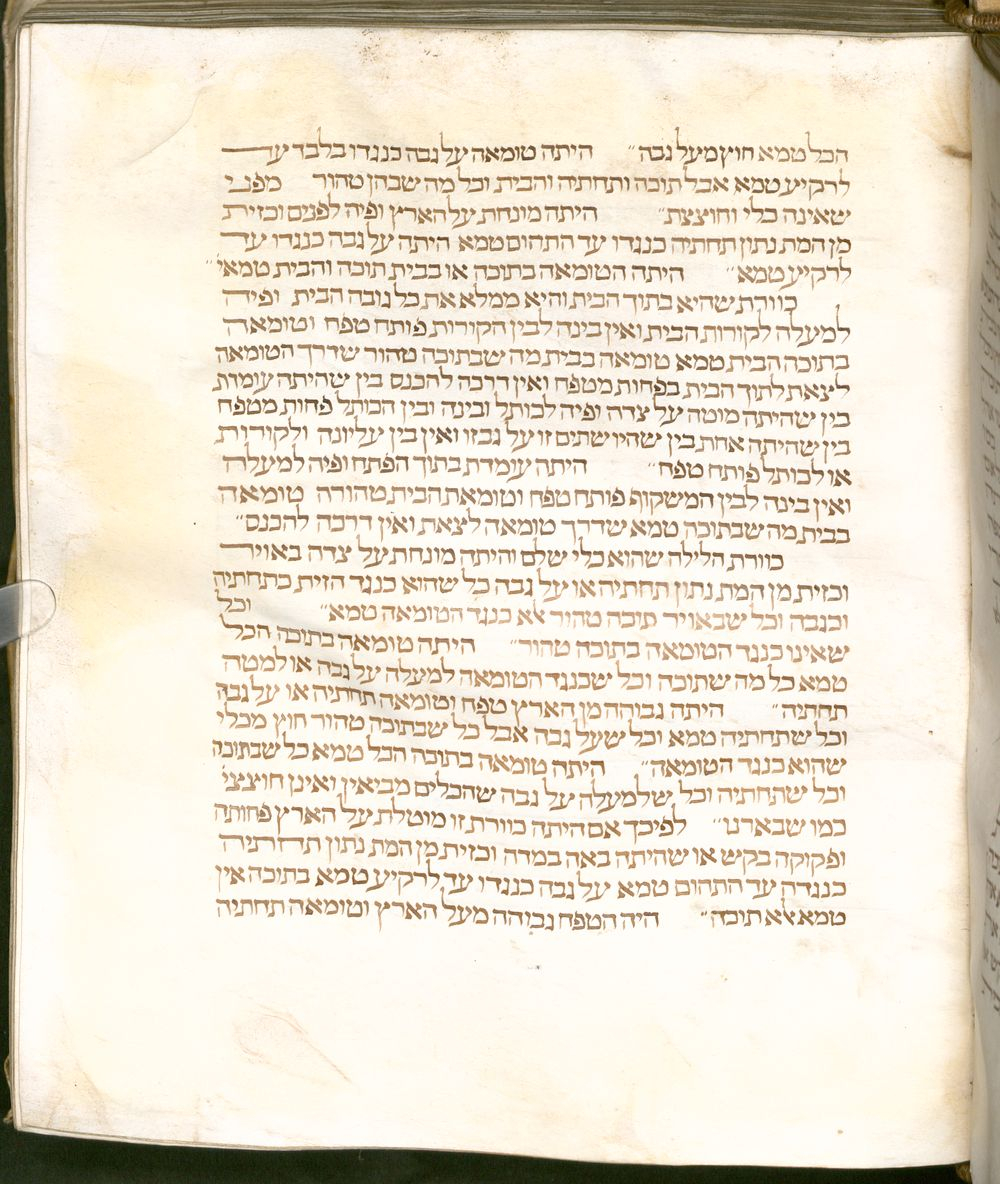 הכל טמא חוץ מעל גבה״ היתה טומאה על גבה כנגדו בלבד עד
לרקיע טמא אבל תוכה ותחתיה והבית וכל מה שבהן טהור מפני
שאינה כלי וחוצצת״ היתה מונחת על הארץ ופיה לפנים וכזית
מן המת נתון תחתיה כנגדו עד התהום טמא היתה על גבה כנגדו עד
לרקיע טמא״ היתה הטומאה בתוכה או בבית תוכה והבית טמאי״
כוורת שהיא בתוך הבית והיא ממלא את כל גובה הבית ופיה
למעלה לקורות הבית ואין בינה לבין הקורות פותח טפח וטומאה
בתוכה הבית טמא טומאה בבית מה שבתוכה טהור שדרך הטומאה
לצאת לתוך הבית בפחות מטפח ואין דרכה להכנס בין שהיתה עומדת
בין שהיתה מוטה על צדה ופיה לכותל ובינה ובין הכותל פחות מטפח
בין שהיתה אחת בין שהיו שתים זו על גבי זו ואין בין עליונה ולקורות
או לכותל פותח טפח״ היתה עומדת בתוך הפתח ופיה למעלה
ואין בינה לבין המשקוף פותח טפח וטומאת הבית טהורה טומאה
בבית מה שבתוכה טמא שדרך טומאה לצאת ואין דרכה להכנס״
כוורת הלילה שהוא כלי שלם והיתה מונחת על צדה באויר
וכזית מן המת נתון תחתיה או על גבה כל שהוא כנגד הזית בתחתיה
ובגבה וכל שבאויר תוכה טהור אלא כנגד הטומאה טמא״ וכל
שאינו כנגד הטומאה בתוכה טהור״ היתה טומאה בתוכה הכל
טמא כל מה שתוכה וכל שכנגד הטומאה למעלה על גבה או למטה
תחתיה״ היתה גבוהה מן הארץ טפח וטומאה תחתיה או על גבה
וכל שתחתיה טמא וכל שעל גבה אבל כל שבתוכה טהור חוץ מכלי
שהוא כנגד הטומאה״ היתה טומאה בתוכה הכל טמא כל שבתוכה
וכל שתחתיה וכל שלמעלה על גבה שהכלים מביאין ואינן חוצצי׳
כמו שבארנו״ לפיכך אם היתה כוורת זו מוטלת על הארץ פחותה
ופקוקה בקש או שהיתה באה במדה וכזית מן המת נתון תחתיה
כנגדה עד התהום טמא על גבה כנגדו עד לרקיע טמא בתוכה אין
טמא אלא תוכה״ היה הטפח גבוהה מעל הארץ וטומאה תחתיה